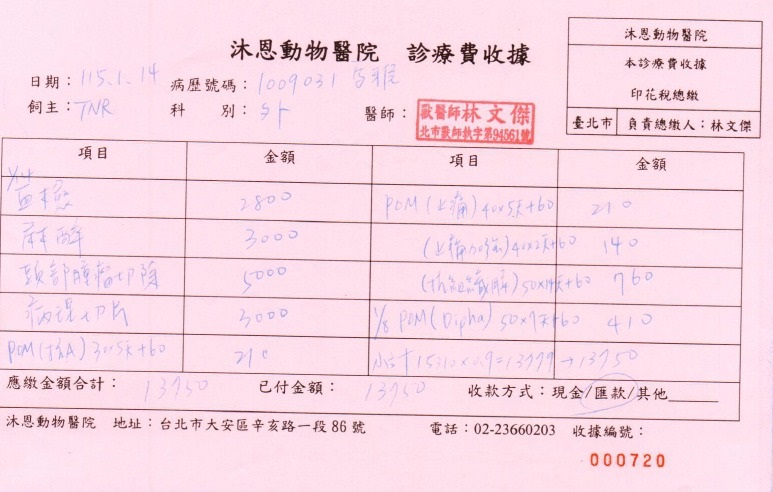 沐恩動物醫院 診療費收據
沐恩動物醫院
本診療費收據
印花稅總繳
臺北市 負責總繳人：林文傑
日期：115.1.14 病歷號碼：1009031
飼主：TNR 科 別：外 醫師：
獸醫師林文傑
北市獸師執字第94561號
項目 金額 項目 金額
1/14
血檢 2800 POM(止痛)40x5天+60 210
麻醉 3000 (止痛加強)40x2天+60 140
頸部腫瘤切除 5000 (抗組織胺)50x14天+60 760
病理切片 3000 1/8 POM(Dipha)50x7天+60 410
POM(抗A)30x5天+60 210 小計 15310x0.9=13779→13750
應繳金額合計：13750 已付金額：13750 收款方式：現金/匯款/其他
沐恩動物醫院 地址：台北市大安區辛亥路一段86號 電話：02-23660203 收據編號：
000720